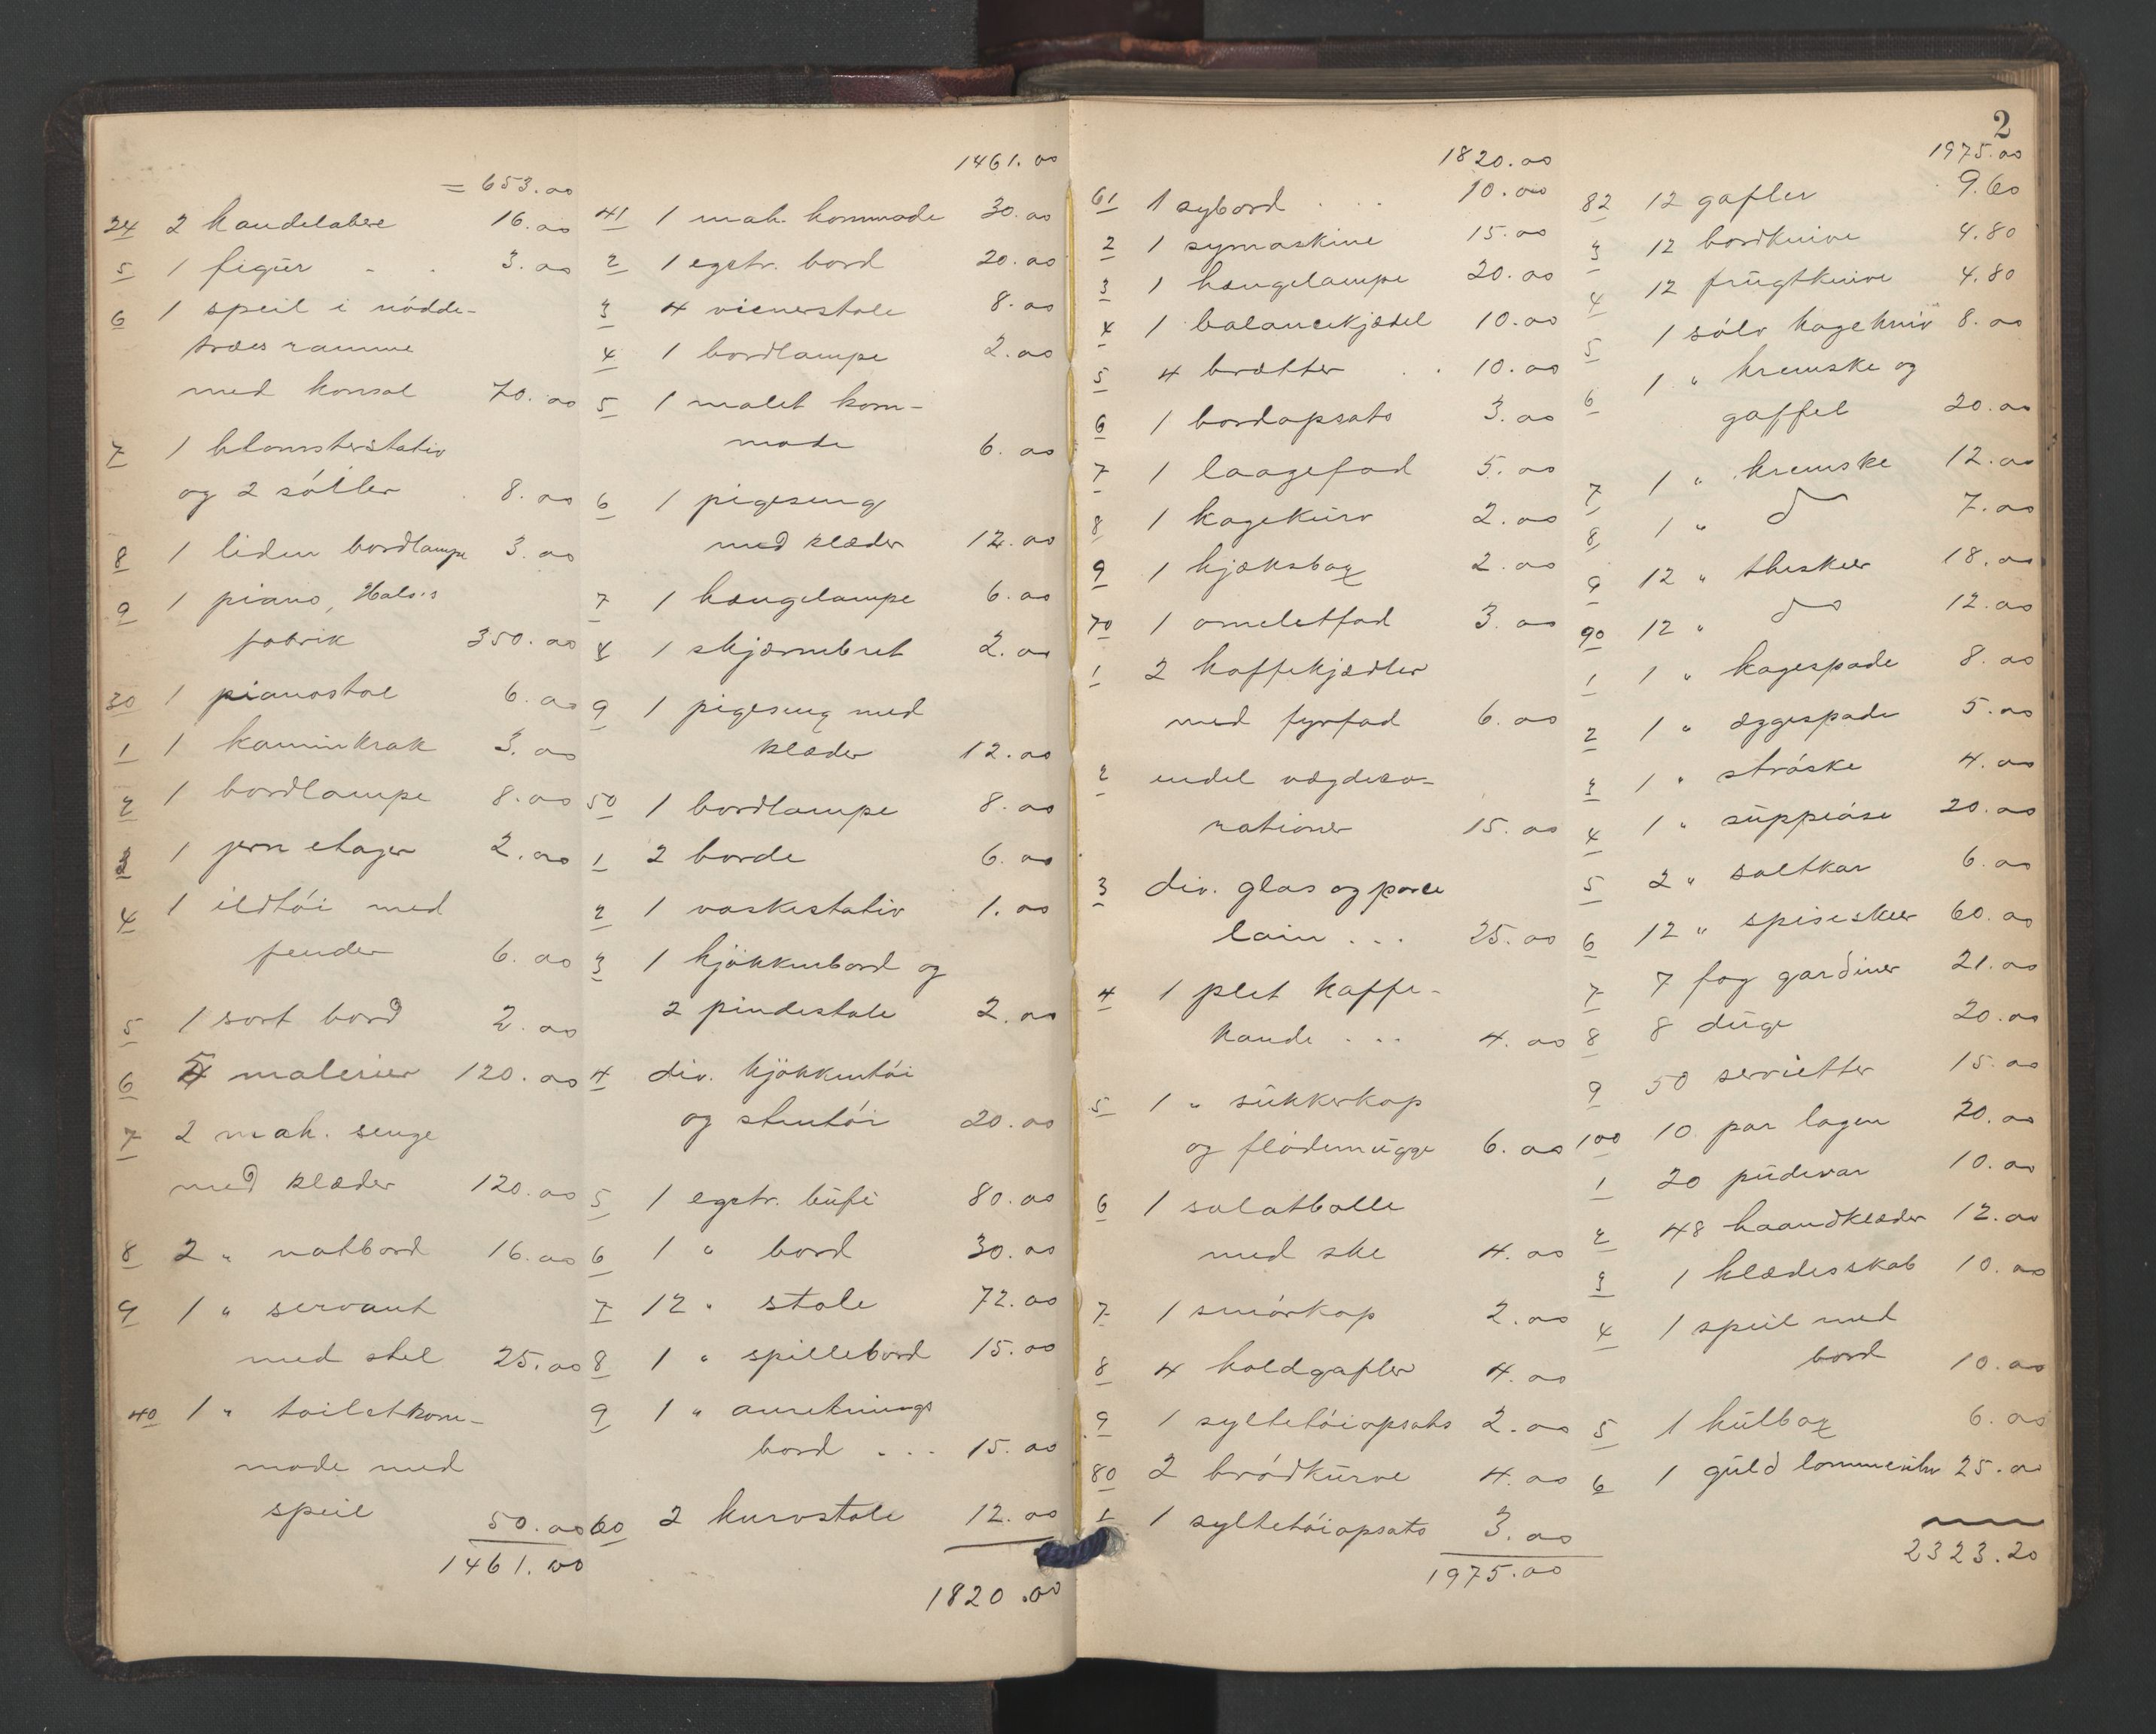 = 653.00
24 2 kandelabere 16.00
5 1 figur - . 3.00
6 1 speil i nödde-
træes ramme
med konsol 70.00
7 1 blomsterstativ
og 2 söiler . 8.00
8 1 liden bordlampe 3.00
9 1 piano, Hals's
fabrik 350.00
30 1 pianostol 6.00
1 1 kaminkrak 3.00
2 1 bordlampe 8.00
3 1 jern etager 2.00
4 1 ildtöi med
fender 6.00
5 1 sort bord 2.00
6 5 malerier 120.00
7 2 mah. senge
med klæder 120.00
8 2 " natbord 16.00
9 1 " servant
med stel 25.00
40 1 " toiletkom-
mode med
speil 50.00
1461.00
1461.00
41 1 mah. kommode 30.00
2 1 egetr. bord 20.00
3 4 vienerstole 8.00
4 1 bordlampe 2.00
5 1 malet kom-
mode 6.00
6 1 pigeseng
med klæder 12.00
7 1 hængelampe 6.00
8 1 skjærmbret 2.00
9 1 pigeseng med
klæder 12.00
50 1 bordlampe 8.00
1 2 borde 6.00
2 1 vaskestativ 1.00
3 1 kjökkenbord og
2 pindestole 2.00
4 div. kjökkentöi
og stentöi 20.00
5 1 egetr. büfé 80.00
6 1 " bord 30.00
7 12 " stole 72.00
8 1 " spillebord 15.00
9 1 " anretnings
bord ... 15.00
60 2 kurvstole 12.00
1820.00
1820.00
61 1 sybord . . . 10.00
2 1 symaskine 15.00
3 1 hængelampe 20.00
4 1 balancekjedel 10.00
5 4 brætter . . 10.00
6 1 bordopsats 3.00
7 1 laagefad 5.00
8 1 kagekurv 2.00
9 1 kjæksbox 2.00
70 1 omeletfad 3.00
1 2 kaffekjedler
med fyrfad 6.00
2 endel vægdeko-
rationer 15.00
3 div. glas og porce
lain ... 25.00
4 1 plet kaffe-
kande ... 4.00
5 1 " sukkerkop
og flödemugge 6.00
6 1 salatbolle
med ske 4.00
7 1 smörkop 2.00
8 4 koldgafler 4.00
9 1 syltetöiopsats 2.00
80 2 brödkurve 4.00
1 1 syltetöiopsats 3.00
1975.00
2
1975.00
82 12 gafler 9.60
3 12 bordknive 4.80
4 12 frugtknive 4.80
5 1 sölv kagekniv 8.00
6 1 " kremske og
gaffel 20.00
7 1 " kremske 12.00
8 1 " do 7.00
9 12 " theskeer 18.00
90 12 " do 12.00
1 1 " kagespade 8.00
2 1 " æggespade 5.00
3 1 " ströske 4.00
4 1 " suppeöse 20.00
5 2 " saltkar 6.00
6 12 " spiseskeer 60.00
7 7 fag gardiner 21.00
8 8 duge 20.00
9 50 servietter 15.00
100 10 par lagen 20.00
1 20 pudevar 10.00
2 48 haandklæder 12.00
3 1 klædesskab 10.00
4 1 speil med
bord 10.00
5 1 kulbox 6.00
6 1 guld lommeuhr 25.00
2323.20